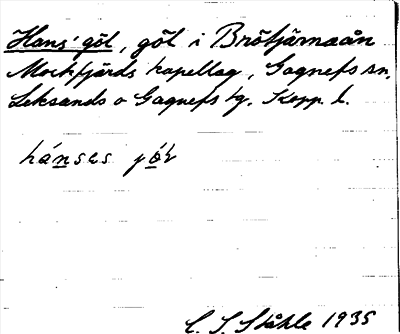 Hans' göl, göl i Brötjärnaån
Mockfjärds kapellag, Gagnefs sn,
Leksands o Gagnefs tg. Kopp. l.
hánses
C. I. Ståhle 1935